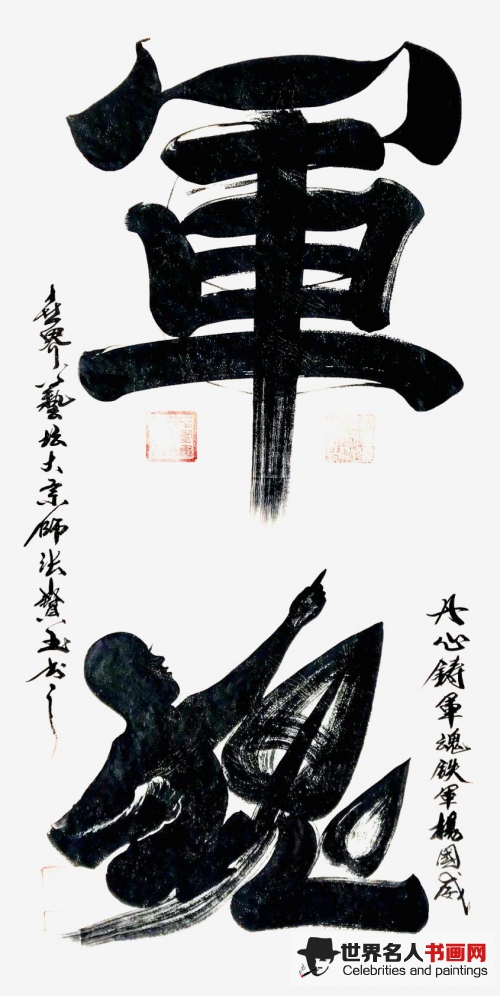 軍魂
丹心铸軍魂铁軍楊國威
世界藝坛大宗師张贊玉书之
世界名人书画网
Celebrities and paintings